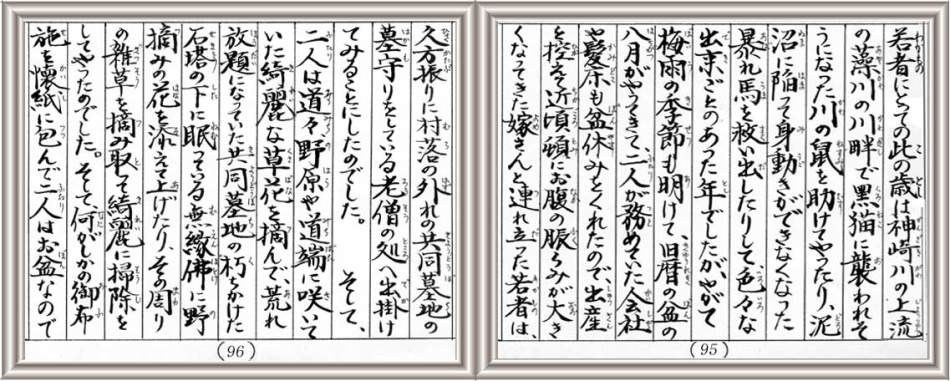 若者にとっての此の歳は神崎川の上流
の藻川の川畔で黒猫に襲われそ
うになった川の鼠を助けてやったり、泥
沼に陥って身動きができなくなった
暴れ馬を救い出したりして色々な
出来ごとのあった年でしたが、やがて
梅雨の季節も明けて、旧暦の盆の
八月がやってきて、二人が務めていた会社
や髪床も盆休みとくれたので、出産
を控えて近頃頓にお腹の脹らみが大き
くなってきた嫁さんと連れ立った若者は、
(95)
久方振りに村落の外れの共同墓地の
墓守りをしている老僧の処へ出掛け
てみることにしたのでした。 そして、
二人は道々野原や道端に咲いて
いた綺麗な草花を摘んで、荒れ
放題になっていた共同墓地の朽ちかけた
石塔の下に眠っている無縁佛に野
摘みの花を添えて上げたり、その周り
の雑草を摘み取って綺麗に掃除を
してやったのでした。そして、何がしかの御布
施を懐紙に包んで二人はお盆なので
(96)